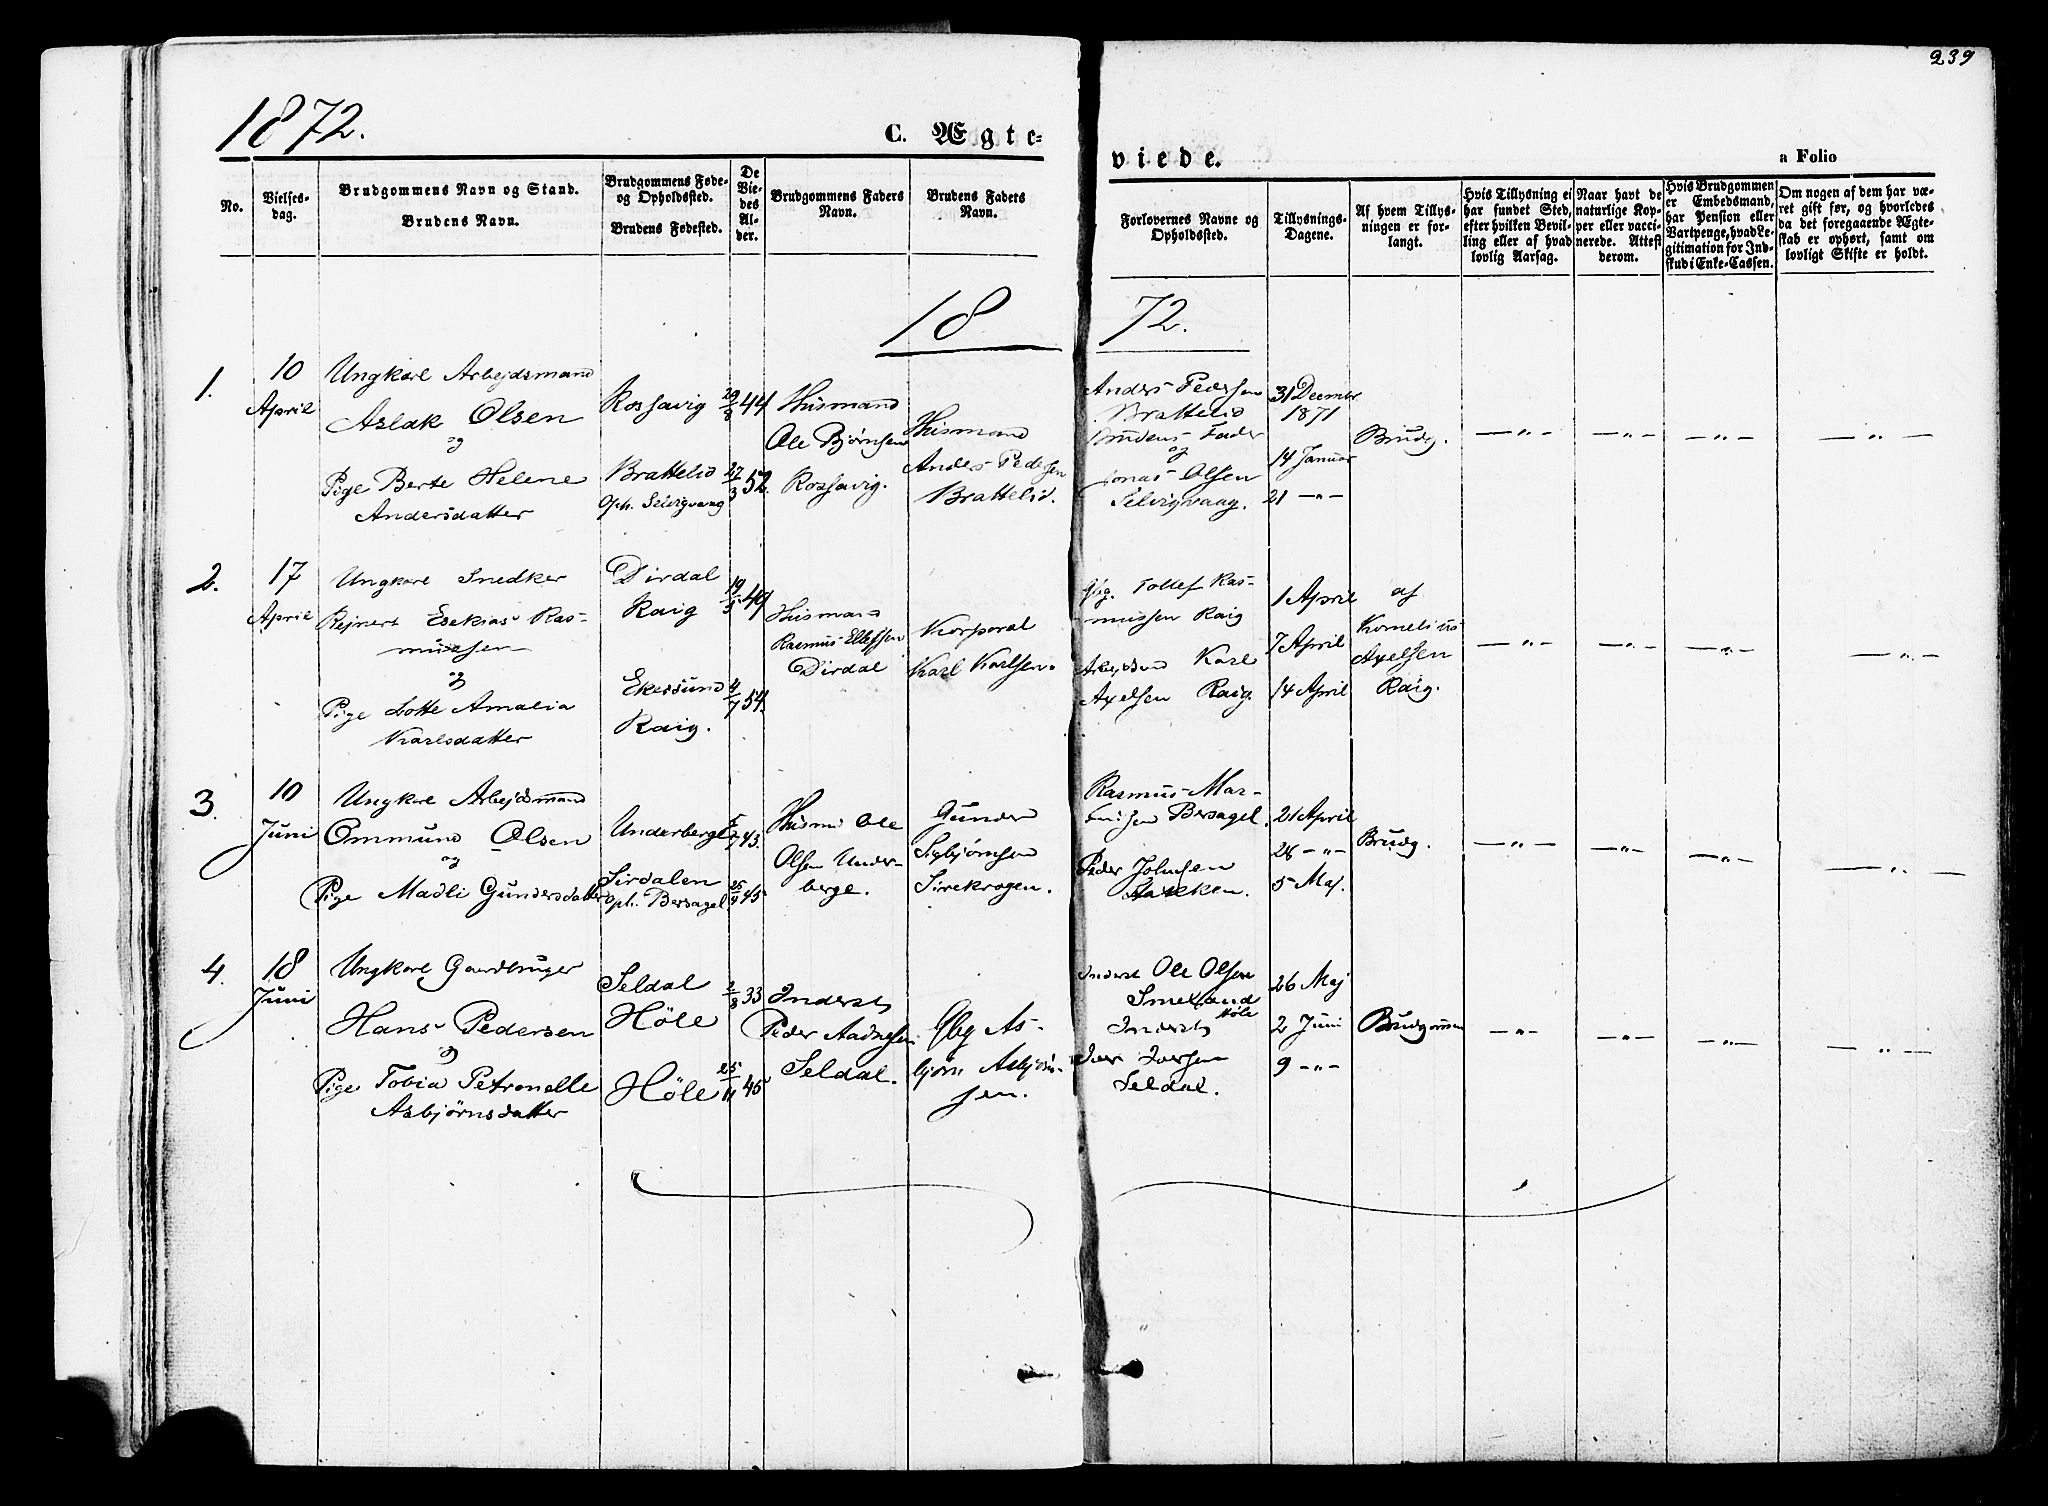 239
1872.
C. Ægte=
viede.
a Folio
No.
Vielses-
dag.
Brudgommens Navn og Stand.
Brudens Navn.
Brudgommens Føde-
og Opholdssted.
Brudens Fødested.
De
Vie-
des
Al-
der.
Brudgommens Faders
Navn.
Brudens Faders
Navn.
Forlovernes Navne og
Opholdssted.
Tillysnings-
Dagene.
Af hvem Tillys-
ningen er for-
langt.
Hvis Tillysning ei
har fundet Sted,
efter hvilken Bevil-
ling eller af hvad
lovlig Aarsag.
Naar havt de
naturlige Kop-
per eller vacci-
nerede. Attest
derom.
Hvis Brudgommen
er Embedsmand,
har Pension eller
Vartpenge, hvad Le-
gitimation for Ind-
skud i Enke-Cassen.
Om nogen af dem har væ-
ret gift før, og hvorledes
da det foregaaende Ægte-
skab er ophørt, samt om
lovligt Skifte er holdt.
18 72.
1.
10
April
Ungkarl Arbejdsmand
Aslak Olsen
og
Pige Berte Helene
Andersdatter
Rossavig
Brattelid
Oph. Selvigvaag
29/8 44
27/3 52.
Husmand
Ole Bjørnsen
Rossavig.
Husmand
Anders Pedersen
Brattelid.
Anders Pedersen
Brattelid
Brudens Fader
og
Jonas Olsen
Selvigvaag.
31 Decembr
1871
14 Januar
21 —"—
Brudg.
—"— —"— —"— —"—
2.
17
April
Ungkarl Snedker
Rejnert Esekias Ras-
mussen
og
Pige Lotte Amalia
Karlsdatter
Dirdal
Raig
Ekersund
Raig.
19/5 49
4/7 54.
Husmand
Rasmus Ellefsen
Dirdal
Korporal
Karl Karlsen.
Gbg. Tollef Ras-
mussen Raig
Arbejdsmd Karl
Axelsen Raig.
1 April
7 April
14 April
af
Kornelius
Axelsen
Raig.
—"— —"— —"— —"—
3.
10
Juni
Ungkarl Arbejdsmand
Ommund Olsen
og
Pige Madli Gundersdatter
Underberge
Sirdalen
oph. Bersagel
43.
25/9 45
Husm. Ole
Olsen Under-
berge.
Gunder
Sigbjørnsen
Sirekrogen.
Rasmus Mar-
Bersagel.
Peder Johnsen
21 April
28 —"—
5 Maj.
Brudg.
—"— —"— —"— —"—
4.
18
Juni
Ungkarl Gaardbruger
Hans Pedersen
og
Pige Tobia Petronelle
Asbjørnsdatter
Seldal
Höle
Höle
2/8 33
25/11 45
Inderst
Peder Aadnesen
Seldal.
Gbg As-
bjørn Asbjørn-
sen.
Inderst Ole Olsen
Smeland
Höle
Inderst
Iver Iversen
Seldal.
26 Maj
2 Juni
9 —"—
Brudgommen
—"— —"— —"— —"—